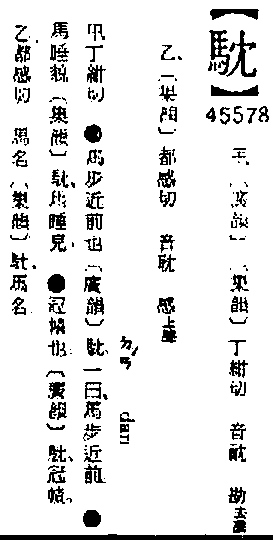 【馾】
45578
甲、〔廣韻〕〔集韻〕丁紺切 音馾 勘去聲
乙、〔集韻〕都感切 音耽 感上聲
ㄉㄢˋ dann
甲丁紺切 ●馬步近前也〔廣韻〕馾、一曰、馬步近前 ●
馬睡貌〔集韻〕馾、馬睡皃 ●冠幘也〔廣韻〕馾、冠幘。
乙都感切 馬名〔集韻〕馾、馬名